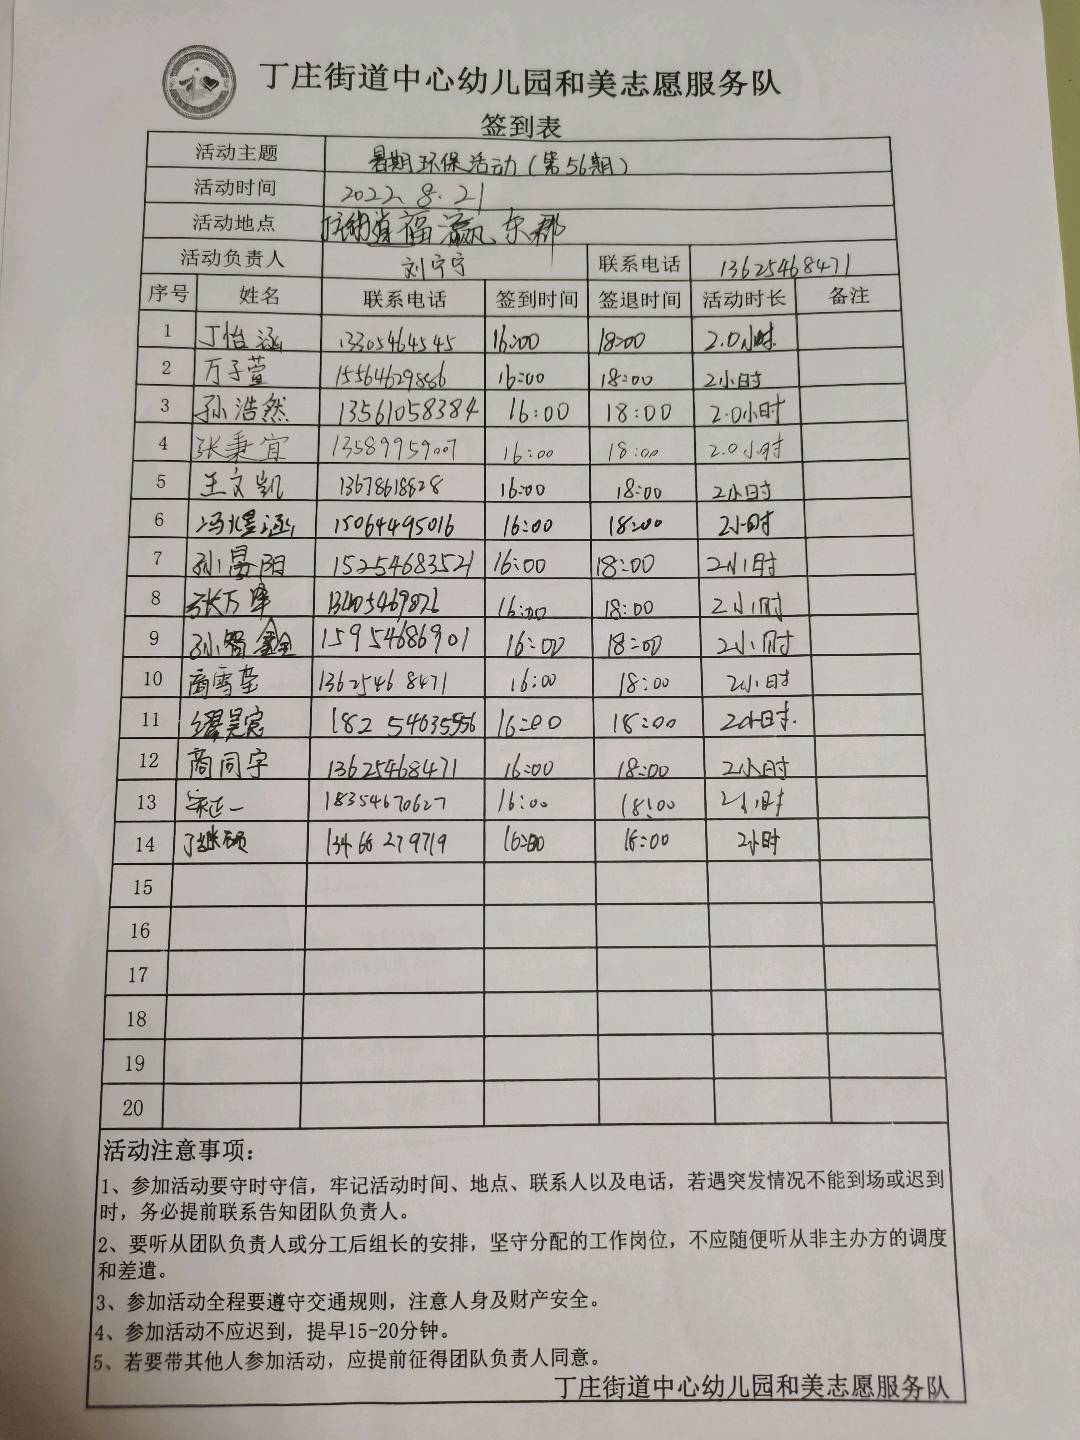 丁庄街道中心幼儿园和美志愿服务队
签到表
活动主题 暑期环保活动(第56期)
活动时间 2022.8.21
活动地点 丁庄街道福瀛东郡
活动负责人 刘宁宁 联系电话 13625468471
序号 姓名 联系电话 签到时间 签退时间 活动时长 备注
1 丁怡涵 13305464545 16:00 18:00 2.0小时
2 万子萱 15564629886 16:00 18:00 2小时
3 孙浩然 13561058384 16:00 18:00 2.0小时
4 张秉宜 13589959007 16:00 18:00 2.0小时
5 王文凯 16:00 18:00 2小时
6 冯煜涵 15064495016 16:00 18:00 2小时
7 15254683521 16:00 18:00 2小时
8 张万 16:00 18:00 2小时
9 孙 鑫 15954686901 16:00 18:00 2小时
10 商雪莹 13625468471 16:00 18:00 2小时
11 18254635956 16:00 18:00 2小时.
12 商同宇 13625468471 16:00 18:00 2小时
13 18354670627 16:00 18:00 2小时
14 丁继硕 13466279719 16:00 18:00 2小时
15
16
17
18
19
20
活动注意事项：
1、参加活动要守时守信，牢记活动时间、地点、联系人以及电话，若遇突发情况不能到场或迟到
时，务必提前联系告知团队负责人。
2、要听从团队负责人或分工后组长的安排，坚守分配的工作岗位，不应随便听从非主办方的调度
和差遣。
3、参加活动全程要遵守交通规则，注意人身及财产安全。
4、参加活动不应迟到，提早15-20分钟。
5、若要带其他人参加活动，应提前征得团队负责人同意。
丁庄街道中心幼儿园和美志愿服务队